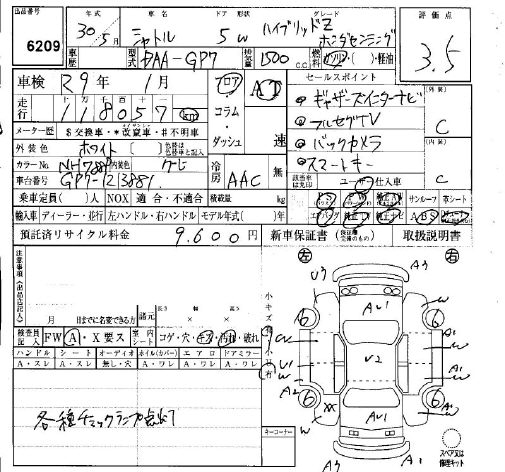 出品番号 年式 車名 ドア 形状 グレード 評価点
6209 30年5月 シャトル 5W ハイブリッドZ ホンダセンシング 3.5
車歴 型式 DAA-GP7 排気量 1500 C.C. 燃料 ガソリン・( )・軽油
車検 R9年1月 フロア・コラム・ダッシュ AT 速 セールスポイント
走行 118057 km
メーター歴 $交換車・*改竄車・#不明車
ギャザーズインターナビ
フルセグTV
バックカメラ
スマートキー
外装 C
内装 C
外装色 ホワイト
カラーNo. NH788P 内装色
車台番号 GP7-1213881
冷房 AAC 無
ユーザー・仕入車
乗車定員( )人 NOX 適合・不適合 積載量 kg
サンルーフ 革シート
輸入車 ディーラー・並行 左ハンドル・右ハンドル モデル年式( )年
エアバッグ ABS
預託済リサイクル料金 9,600円 新車保証書 取扱説明書
注意事項(出品店記入)
月 日までに名変できる方
諸元 長さ 幅 高さ
検査員記入 FW A・X要ス 室内シート コゲ・穴・キズ・汚れ・破れ
ハンドル シート オーディオ ホイル(カバー) エアロ ドアミラー
A・スレ A・スレ 無し・穴 A・ワレ A・ワレ A・ワレ
各種チェックランプ点灯
キーコーナー
小キズ 小凹有
左 右
A3
U3 W
AU1
6 6
W A1
W
U2
U1 A1
W W
A2
6 6
XX A1
W AU1 W
A3
スペア又は修理キット